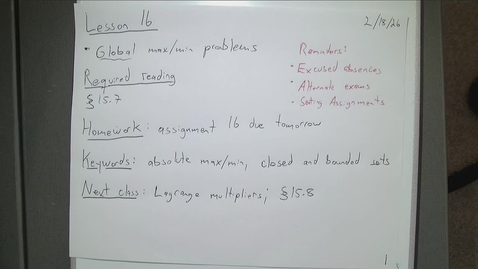 Lesson 16
2/18/26
• Global max/min problems
Required reading
§15.7
Reminders:
• Excused absences
• Alternate exams
• Seating Assignments
Homework: assignment 16 due tomorrow
Keywords: absolute max/min, closed and bounded sets
Next class: Lagrange multipliers; §15.8
1